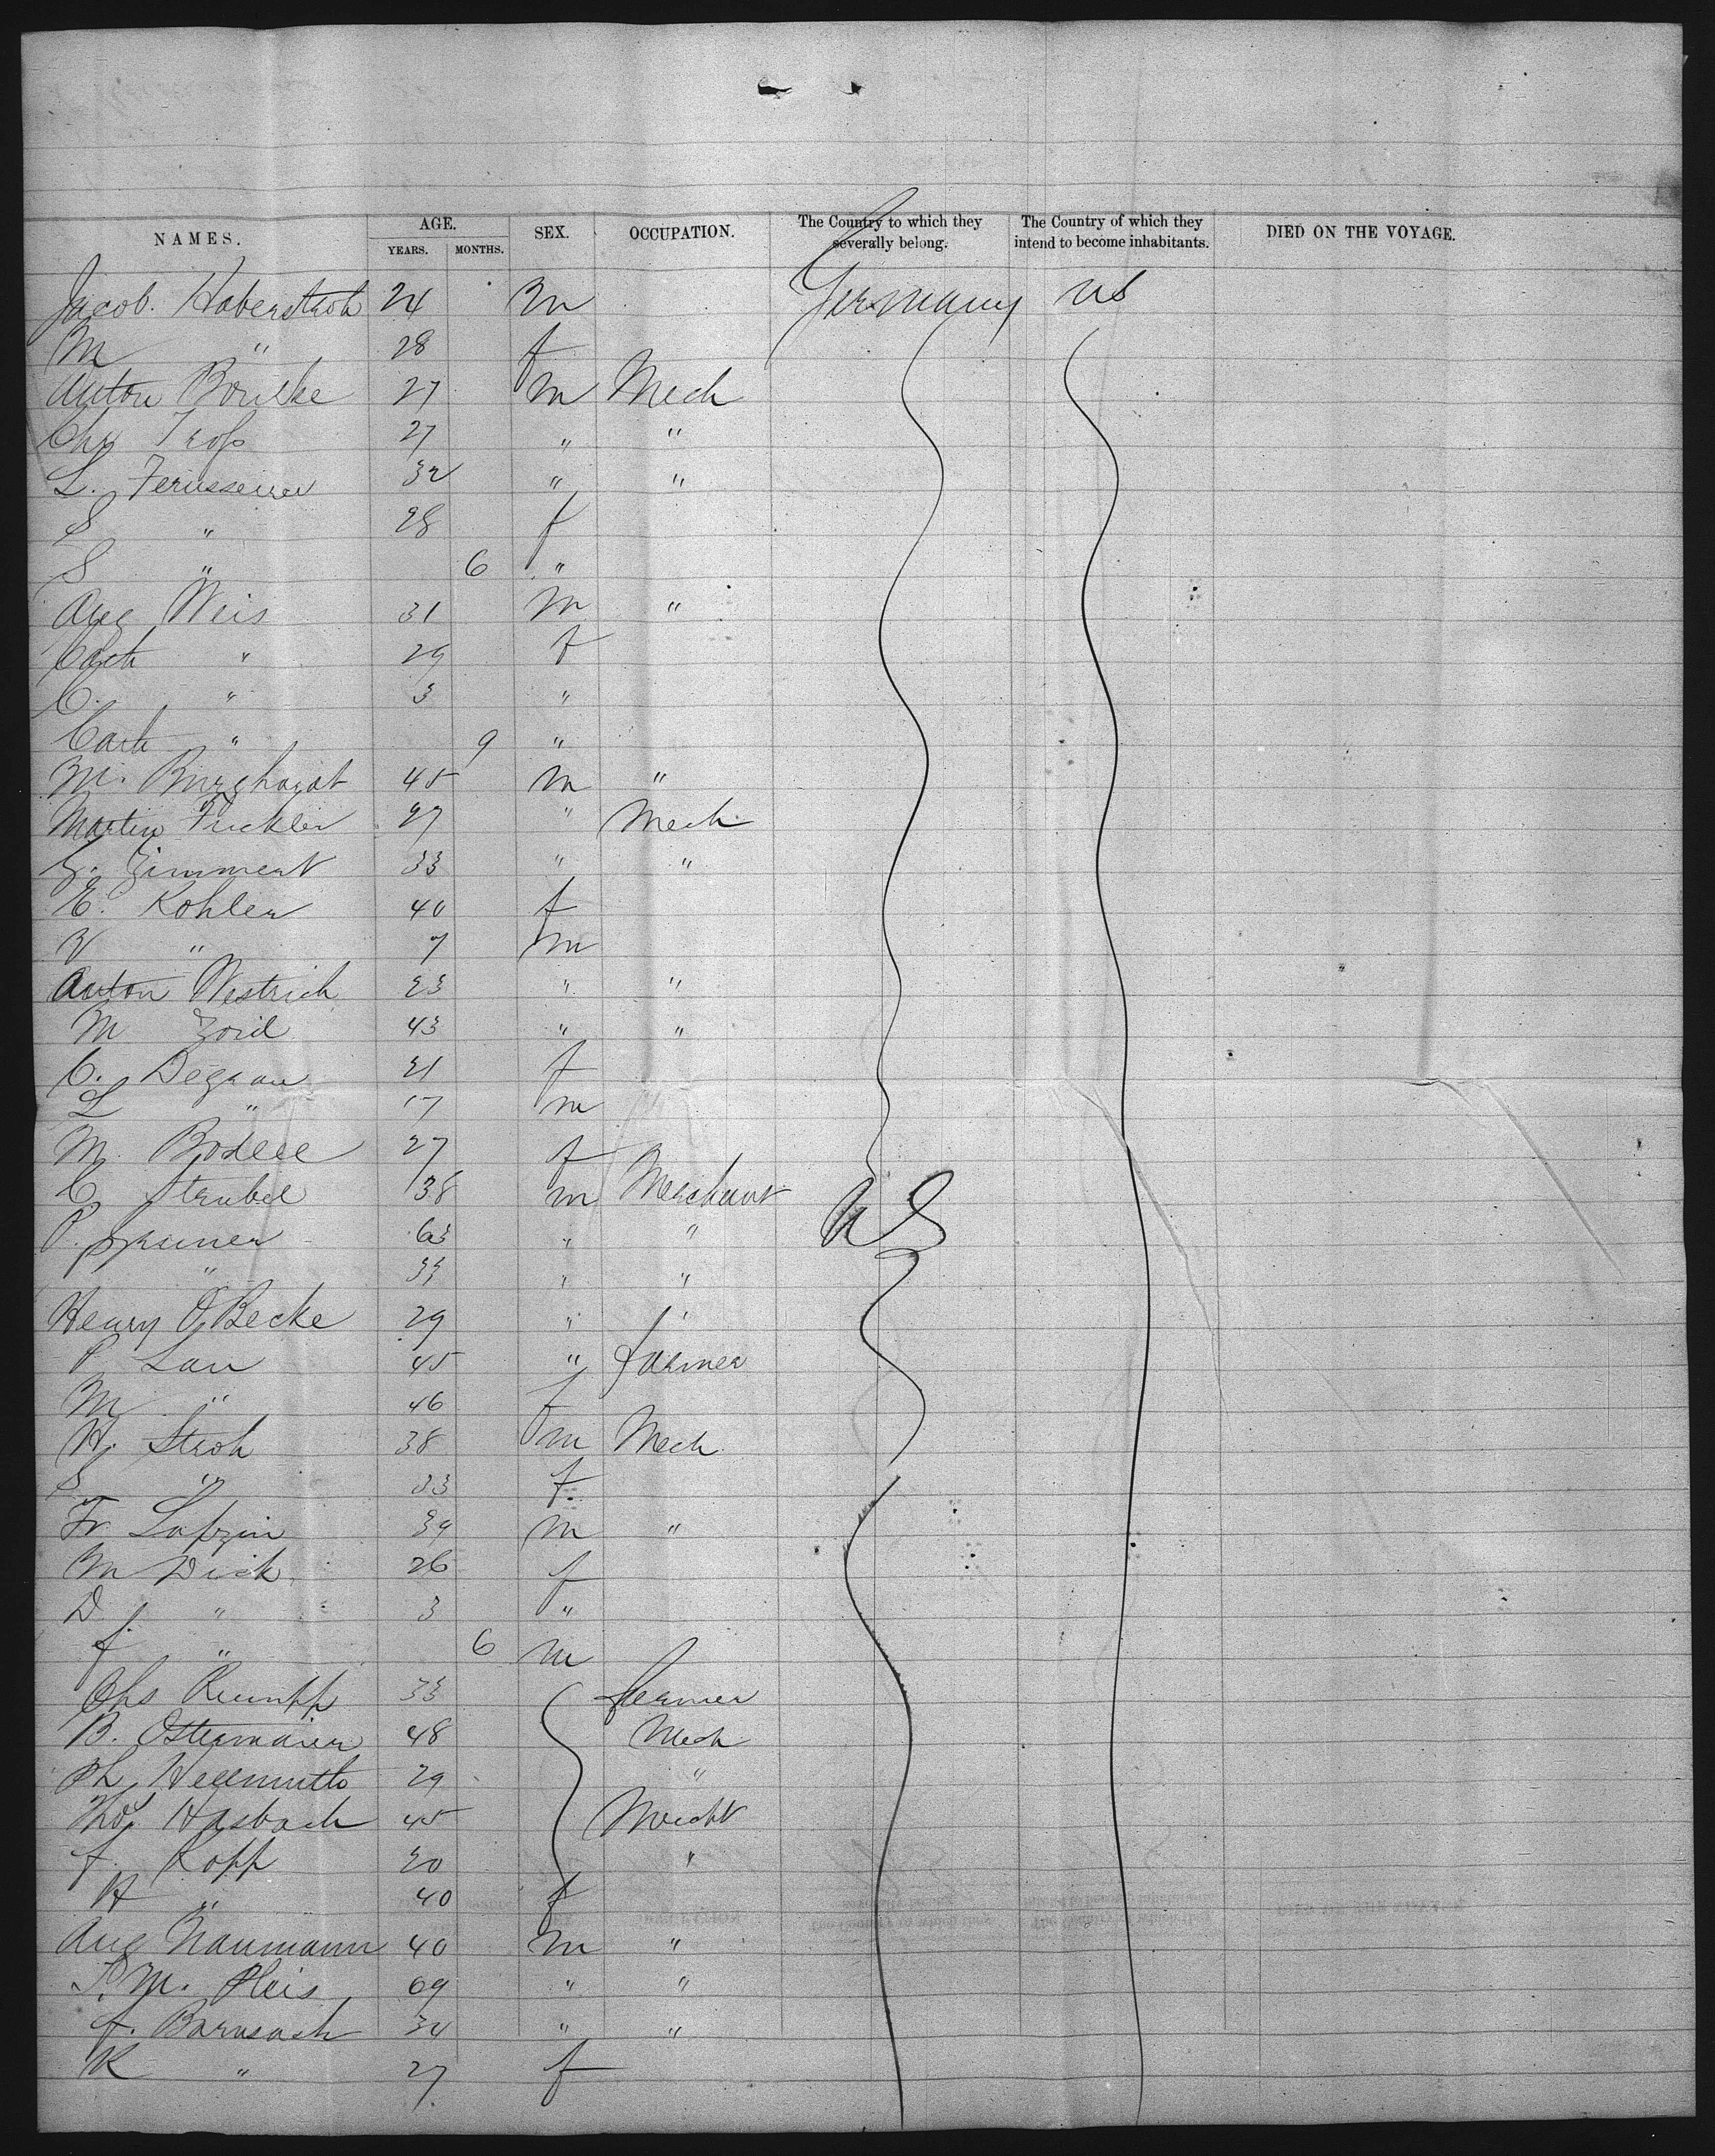 NAMES. AGE. YEARS. MONTHS. SEX. OCCUPATION. The Country to which they severally belong. The Country of which they intend to become inhabitants. DIED ON THE VOYAGE.
Jacob. Haberstroh 24 m Germany US
M " 28 f
Anton 27 m Mech
Chr Tross 27 " "
L. 32 " "
S " 28 f
S " 6 "
Aug Weis 31 m "
Cath " 29 f
C. " 3 "
Cath " 9 "
M. Burghardt 45 m "
Martin Frickler 27 " Mech
G. Zimment 33 " "
E. Kohler 40 f
V " 7 m
Anton Westrich 23 " "
M Zoid 43 " "
C. Degrau 21 f
L " 17 m
M. Bodell 27 f
C. Strubel 38 m Merchant US
P. 63 " "
" 33 " "
Henry O Becke 29 " "
P Lau 45 " farmer
M " 46 f
H. Stroh 38 m Mech
S " 33 f.
Fr 39 m "
M Dick 26 f
D " 3 "
f. " 6 m
Chs Rumpp 33 farmer
B. Ostermaier 48 Mech
Ph Hellmuth 29 "
Tho Hasbach 45 Mercht
f. Kopp 20 "
H " 40 f
Aug Naumann 40 m "
P. M. Pleis 69 " "
f. Barnsach 34 " "
K " 27 f